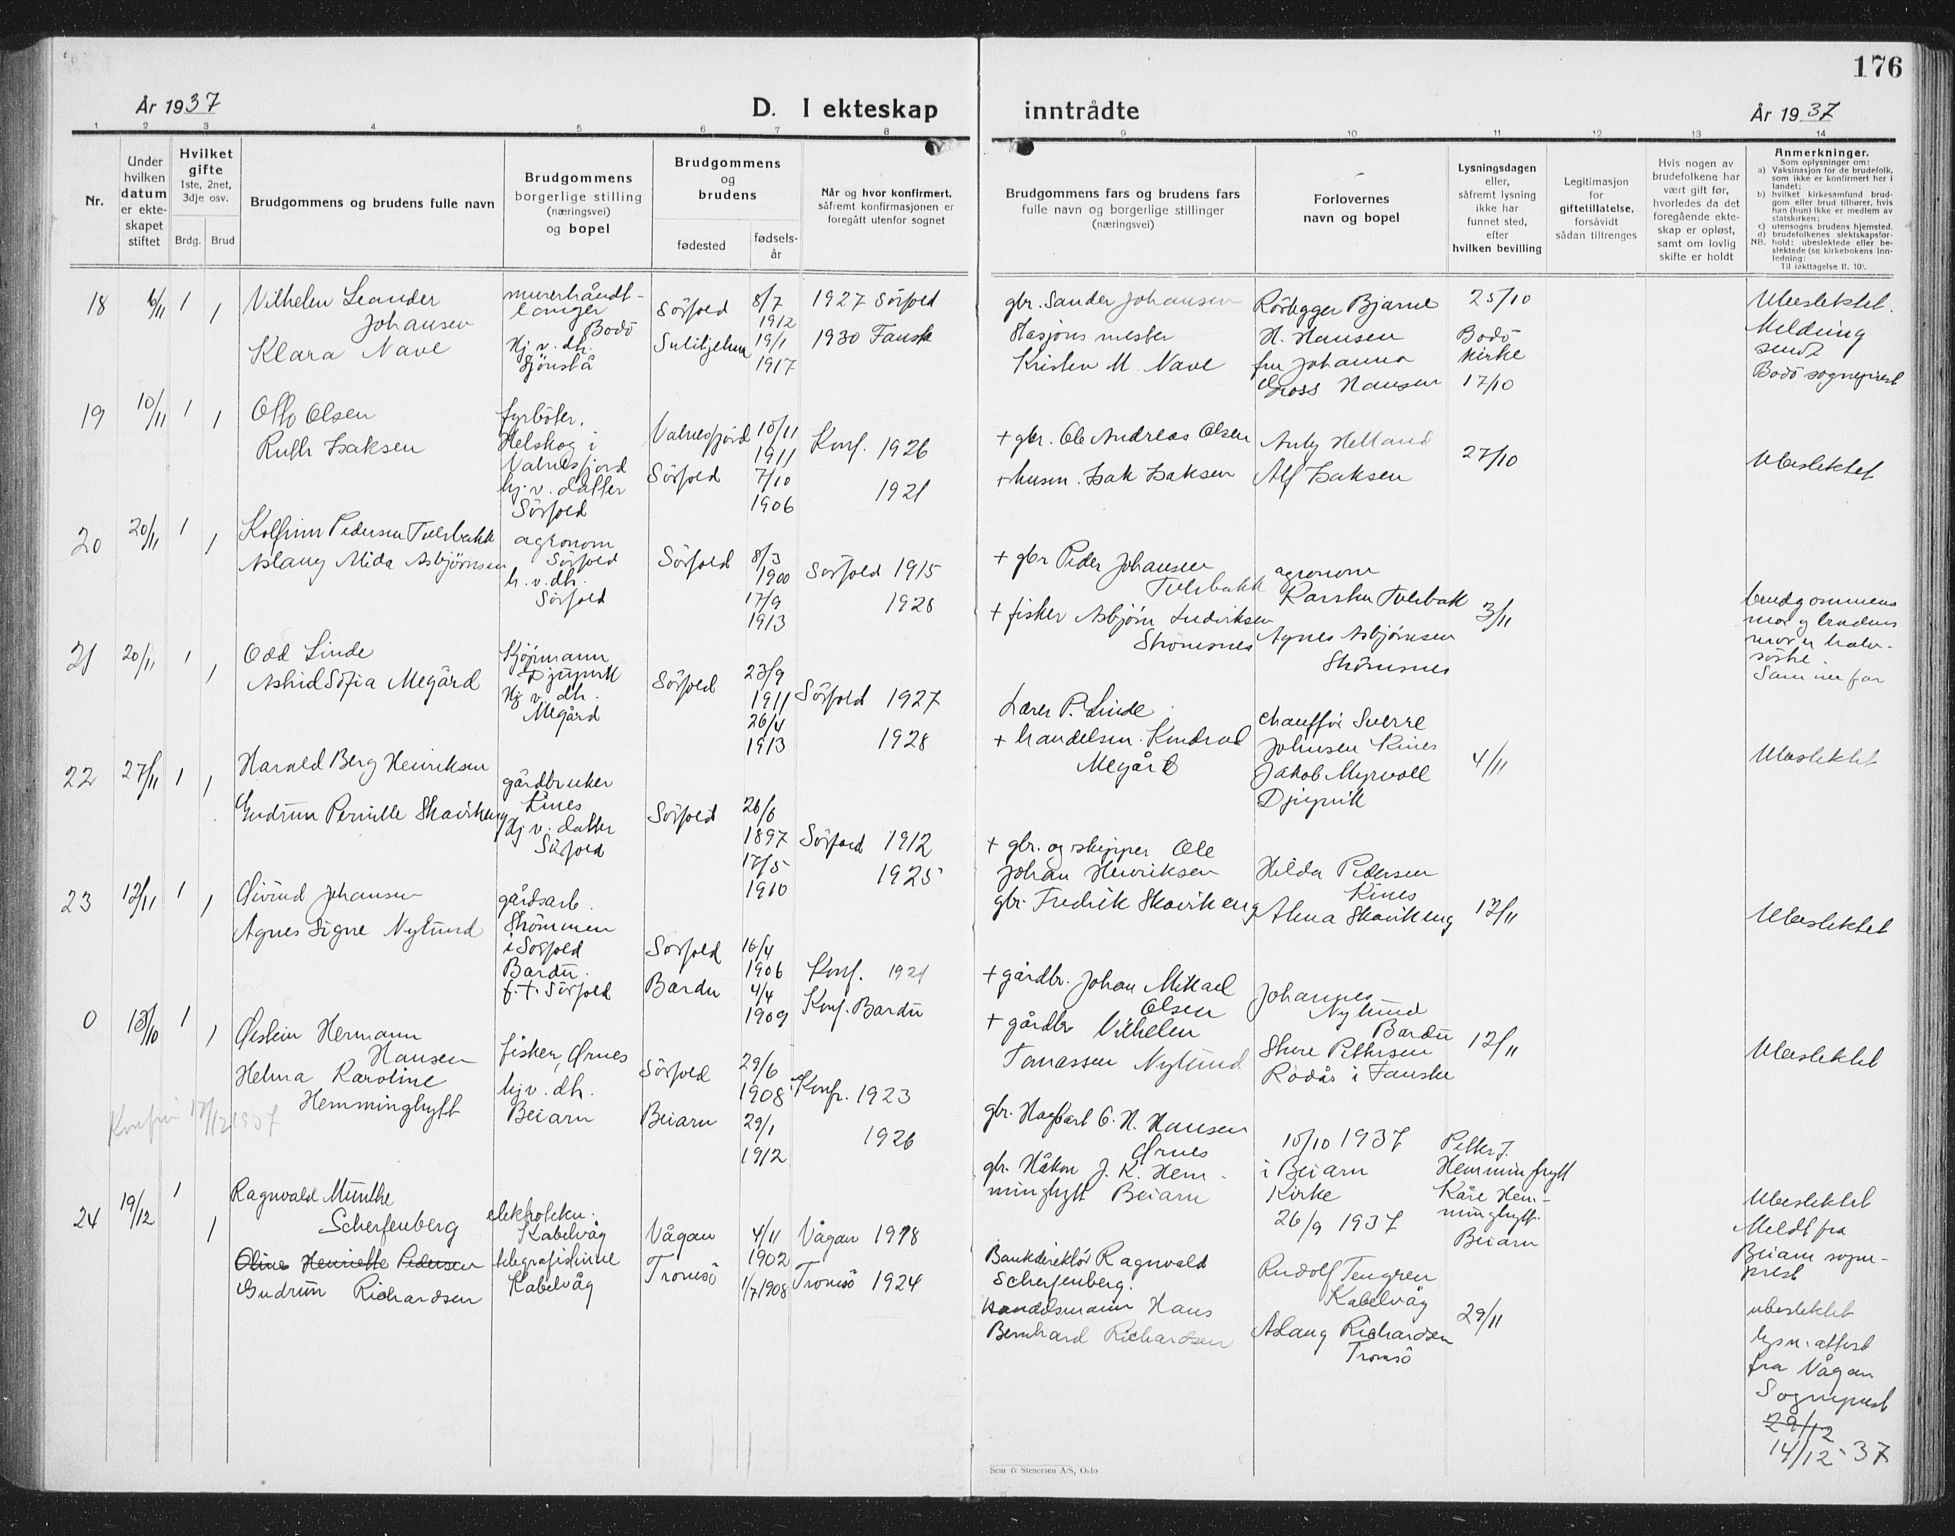 176
År 1937
D. I ekteskap inntrådte
År 1937
1 2 3 4 5 6 7 8 9 10 11 12 13 14
Nr.
Under hvilken datum er ekte-skapet stiftet
Hvilket gifte
1ste, 2net, 3dje osv.
Brdg. Brud
Brudgommens og brudens fulle navn
Brudgommens borgerlige stilling (næringsvei) og bopel
Brudgommens og brudens
fødested
fødsels-år
Når og hvor konfirmert, såfremt konfirmasjonen er foregått utenfor sognet
Brudgommens fars og brudens fars fulle navn og borgerlige stillinger (næringsvei)
Forlovernes navn og bopel
Lysningsdagen eller, såfremt lysning ikke har funnet sted, efter hvilken bevilling
Legitimasjon for giftetillatelse, forsåvidt sådan tiltrenges
Hvis nogen av brudefolkene har vært gift før, hvorledes da det foregående ekte-skap er opløst, samt om lovlig skifte er holdt
Anmerkninger.
Som oplysninger om:
a) Vaksinasjon for de brudefolk, som ikke er konfirmert her i landet;
b) hvilket kirkesamfund brud-gom eller brud tilhører, hvis han (hun) ikke er medlem av statskirken;
c) utensogns brudens hjemsted.
d) brudefolkenes slektskapsfor-hold: ubeslektede eller be-slektede (se kirkebokens inn-ledning:
NB.
Til iakttagelse II. 10).
18 6/11 1 1
Vilhelm Leander
Johansen
Klara Nave
murerhåndt-
langer
Bodö
Hj v. dh.
Sjönstå
Sörfold 8/7 1912 1927 Sörfold
Sulitjelma 19/1 1917 1930 Fauske
gbr. Sander Johansen
Stasjons mester
Kristen M. Nave
Rörlegger Bjarne
H. Hansen
fru Johanna
Gross Hansen
25/10
Bodö
Kirke
17/10
Ubeslektet.
Melding
sendt
Bodö sogneprest
19 10/11 1 1
Otto Olsen
Ruth Isaksen
fyrböter.
Helskog i
Valnesfjord
hj. v. datter
Sörfold
Valnesfjord 10/11 1911 Konf. 1926
Sörfold 7/10 1906 1921
+ gbr. Ole Andreas Olsen
+ husm. Isak Isaksen
Anty Helland
Alf Isaksen
27/10
Ubeslektet
20 20/11 1 1
Kolfinn Pedersen Tverbakk
Aslaug Mida Asbjørnsen
agronom
Sörfold
h. v. dh.
Sörfold
Sörfold 8/3 1900 Sörfold 1915
17/9 1913 1928
+ gbr Peder Johansen
Tverbakk
+ fisker Asbjørn Ludviksen
Strömsnes
agronom
Karsten Tverbak
Agnes Asbjørnsen
Strömsnes
3/11
brudgommens
mor og brudens
mor er halv-
söstre.
Samme far
21 20/11 1 1
Odd Linde
Astrid Sofia Megård
Sjömann
Djupvik
Hj v. dh.
Megård
Sörfold 23/9 1911 Sörfold 1927
26/4 1913 1928
Lærer P. Linde
+ handelsm. Kondrad
Megård
chauffør Sverre
Johnsen Kines
Jakob Myrvoll
Djupvik
4/11
Ubeslektet
22 27/11 1 1
Harald Berg Henriksen
Gudrun Pernille Skavikeng
gårdbruker
Kines
Hj v. datter
Sörfold
Sörfold 26/6 1897 Sörfold 1912
17/5 1910 1925
+ gbr. og skipper Ole
Johan Henriksen
gbr. Fredrik Skavikeng
Hilda Pedersen
Kines
Alma Skavikeng
12/11
Ubeslektet
23 12/11 1 1
Øivind Johansen
Agnes Signe Nylund
gårdsarb.
Strömmen
i Sörfold
Bardu.
f. t. Sörfold
Sörfold 16/4 1906 Konf. 1921
Bardu 4/4 1909 Konf. Bardu
+ gårdbr. Johan Mikael
Olsen
+ gårdbr Vilhelm
Tomassen Nylund
Johannes
Nylund
Bardu
Sture Pettersen
Rodås i Fauske
12/11
Ubeslektet
0 13/10 1 1
Øistein Hermann
Hansen
Helma Karoline
Hemminghytt
17/12 1937
fisker, Ørnes
hj v. dh.
Beiarn
Sörfold 29/6 1908 Konf. 1923
Beiarn 29/1 1912 1926
gbr. Hagbart C. N. Hansen
Ørnes
gbr. Håkon J. K. Hem-
minghytt Beiarn
10/10 1937
i Beiarn
Kirke
26/9 1937
Petter J.
Hemminghytt
Kåre Hem-
minghytt.
Beiarn
Ubeslektet
Meldt fra
Beiarn sogne-
prest
24 19/12 1 1
Ragnvald Munthe
Scherfenberg
Oline Henriette Pedersen
Gudrun Richardsen
elektrotekn.
Kabelvåg
telegrafistinne
Kabelvåg
Vågan 4/11 1902 Vågan 1918
Tromsö 1/7 1908 Tromsö 1924
Bankdirektör Ragnvald
Scherfenberg.
Handelsmann Hans
Bernhard Richardsen
Rudolf Tengren
Kabelvåg
Aslaug Richardsen
Tromsö
29/11
ubeslektet
lysn. attest
fra Vågan
Sogneprest
29/12
14/12-37
Sem & Stenersen A/S, Oslo